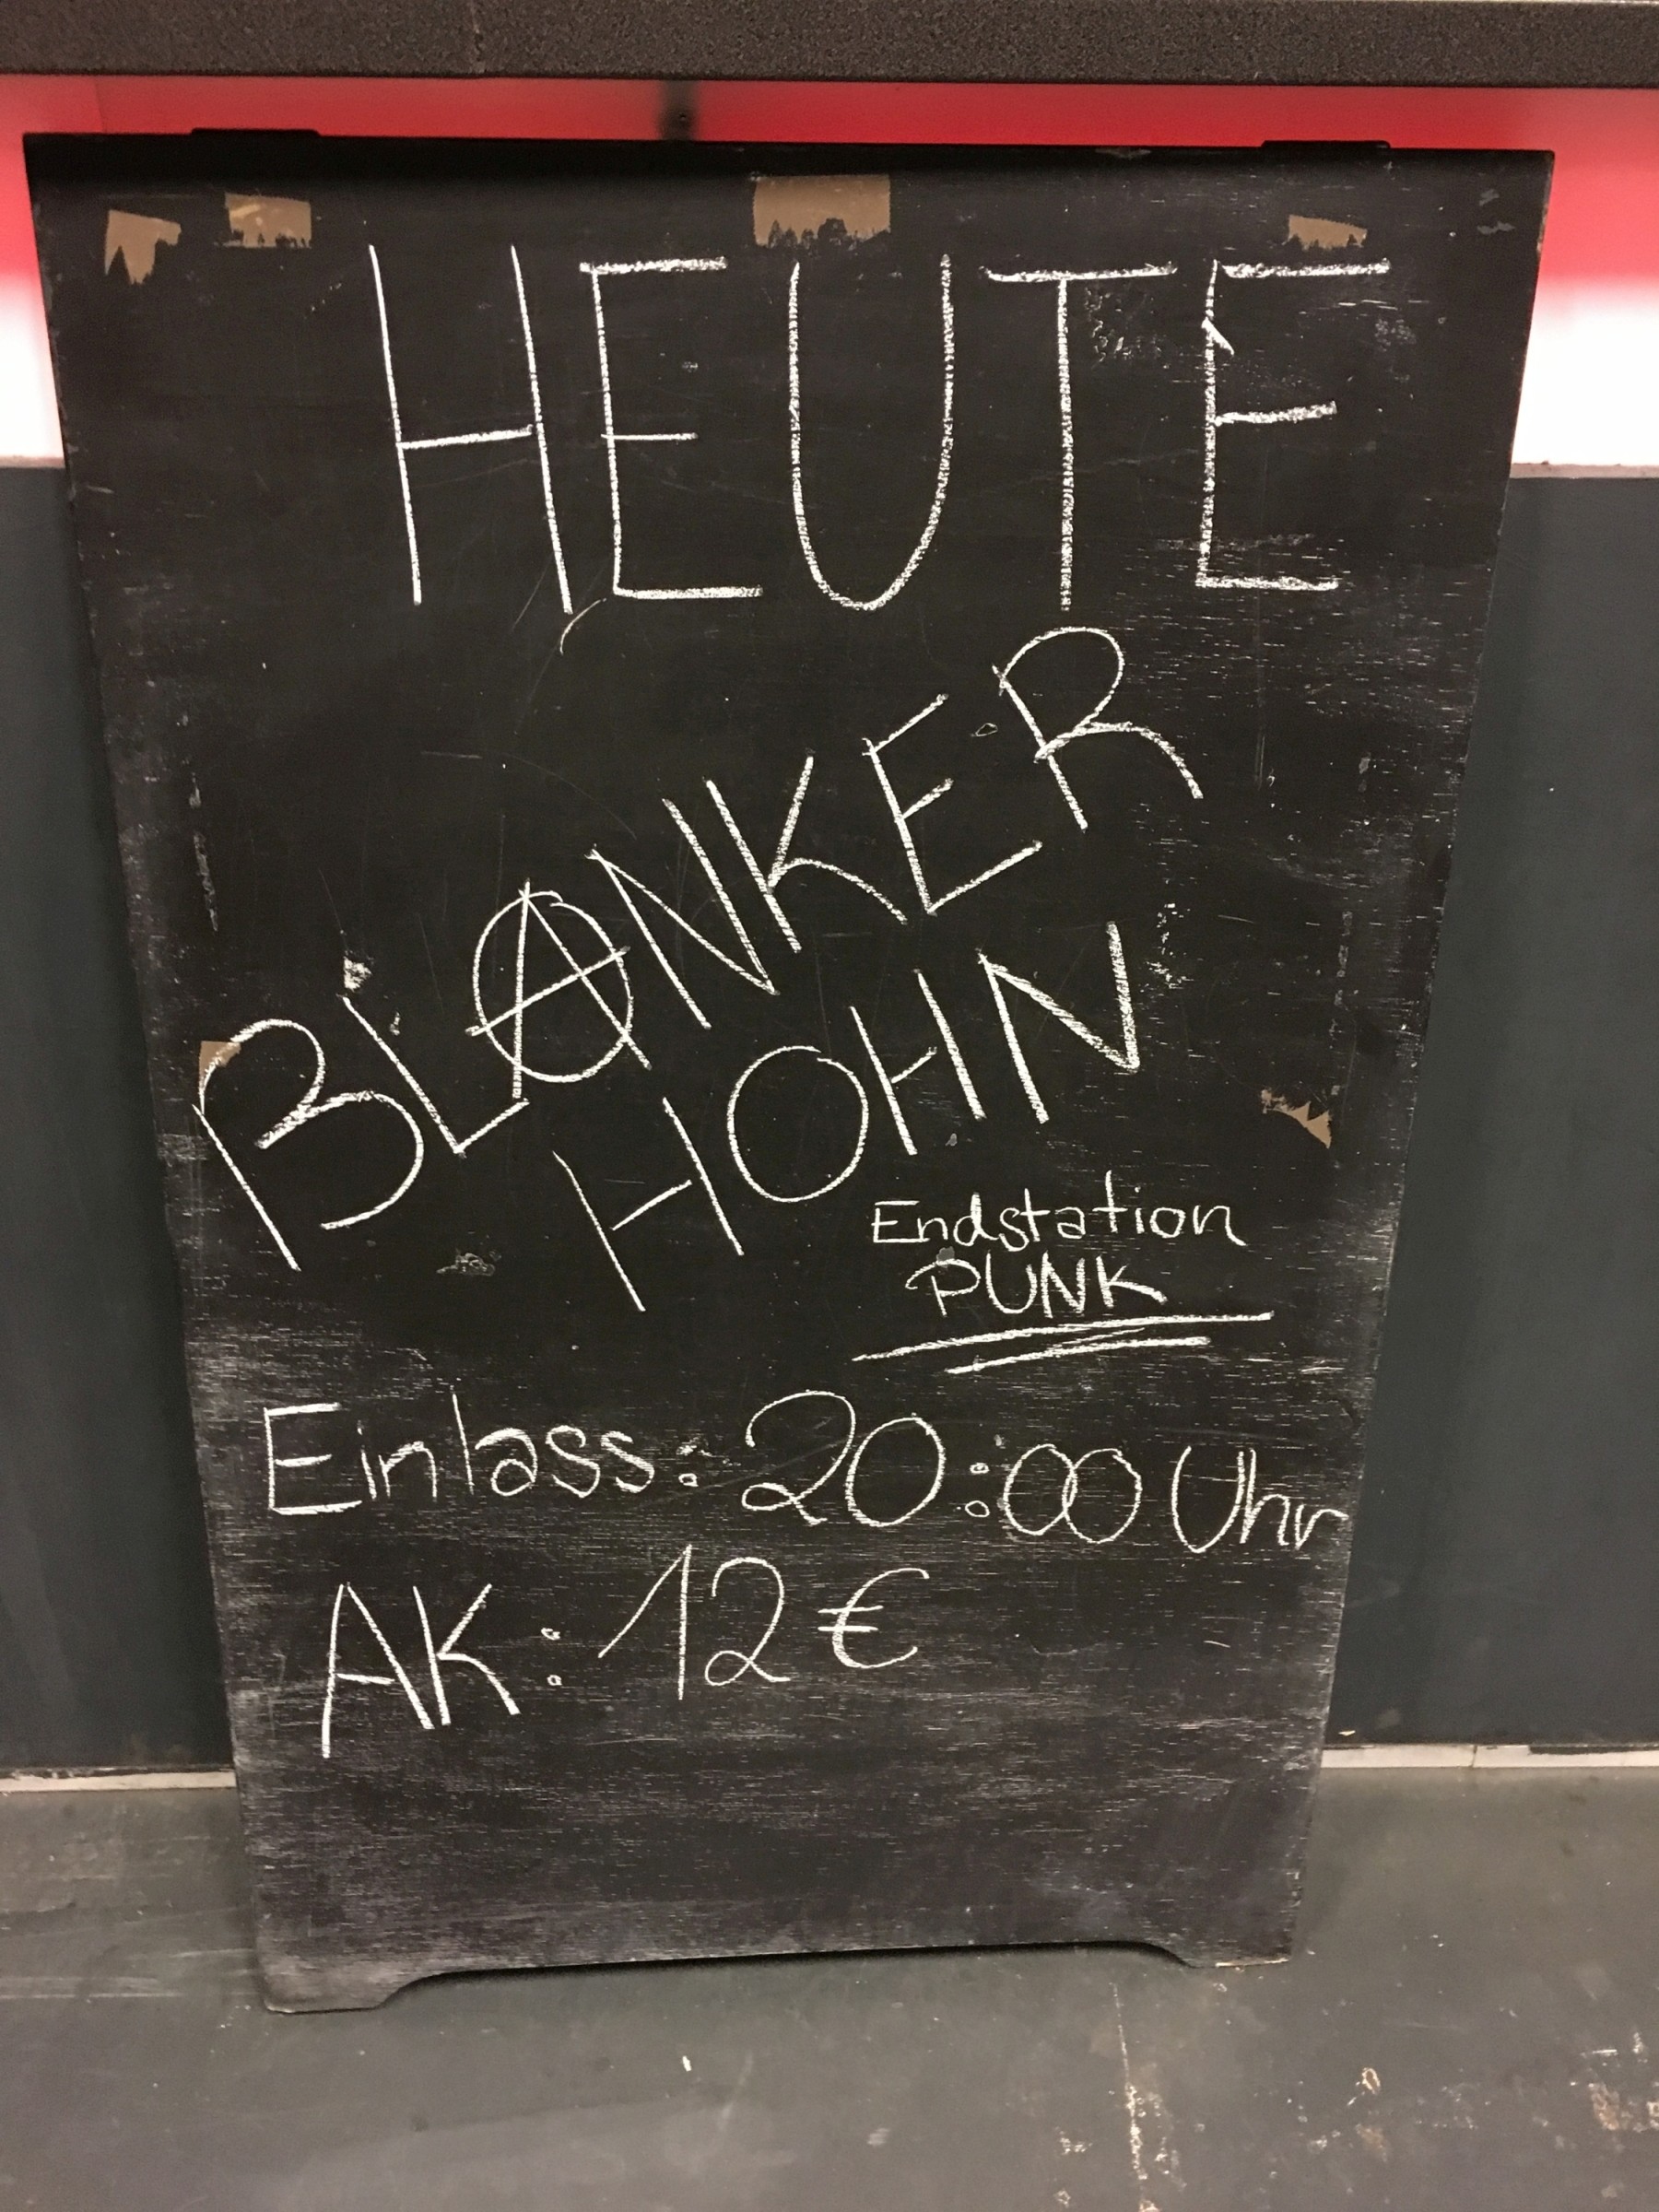 HEUTE
BLANKER
HOHN
Endstation
PUNK
Einlass: 20:00 Uhr
AK: 12 €